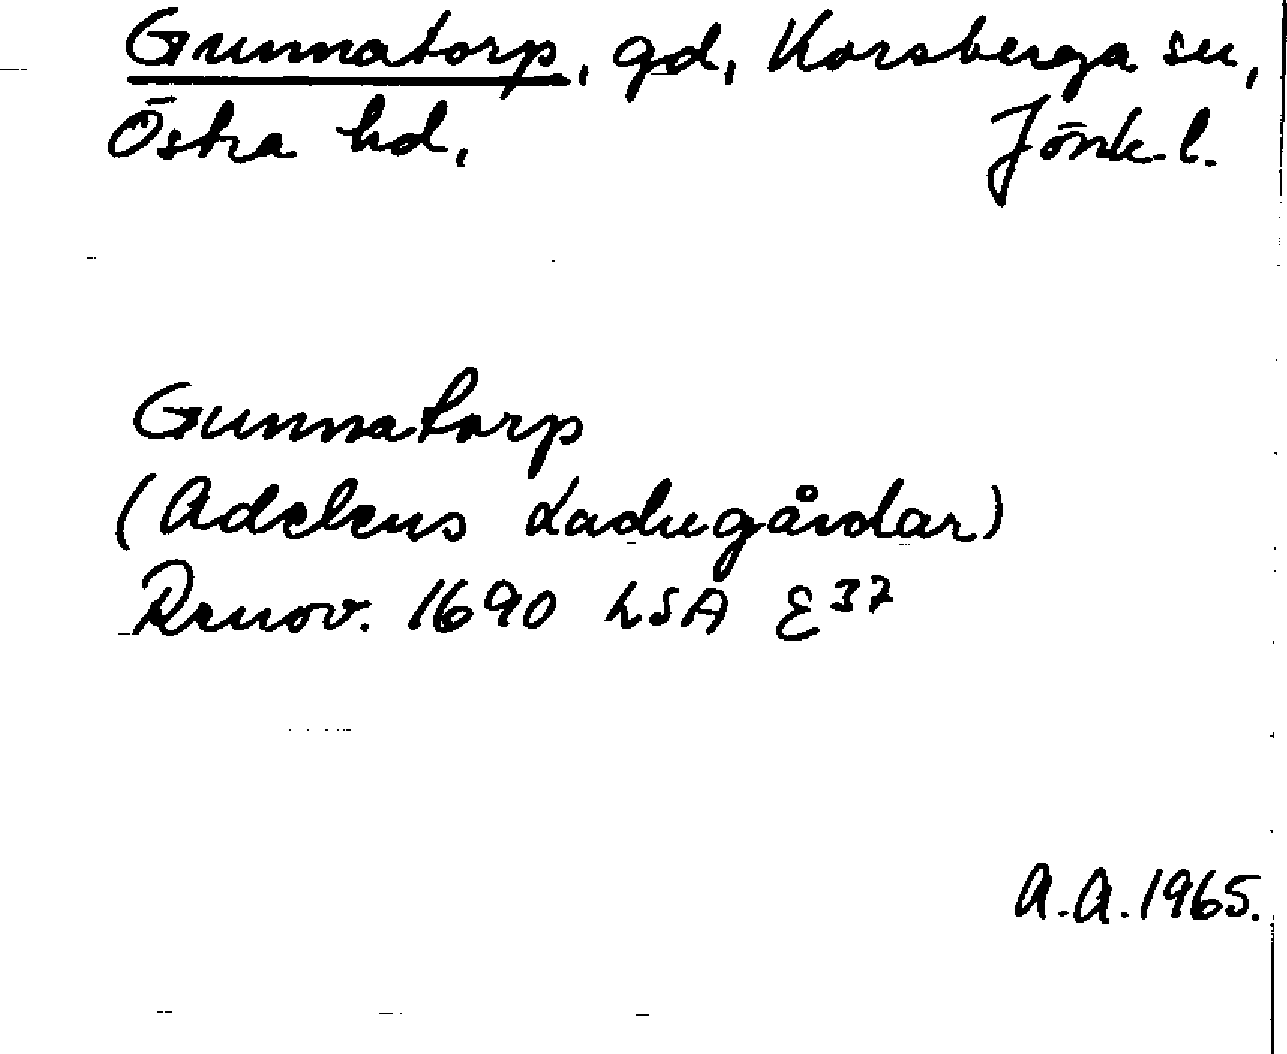 Gunnatorp, gd, Korsberga sn,
Östra hd, Jönk. l.
Gunnatorp
(Adelens Ladugårdar)
Renov. 1690 LSA E 37
A.A. 1965.